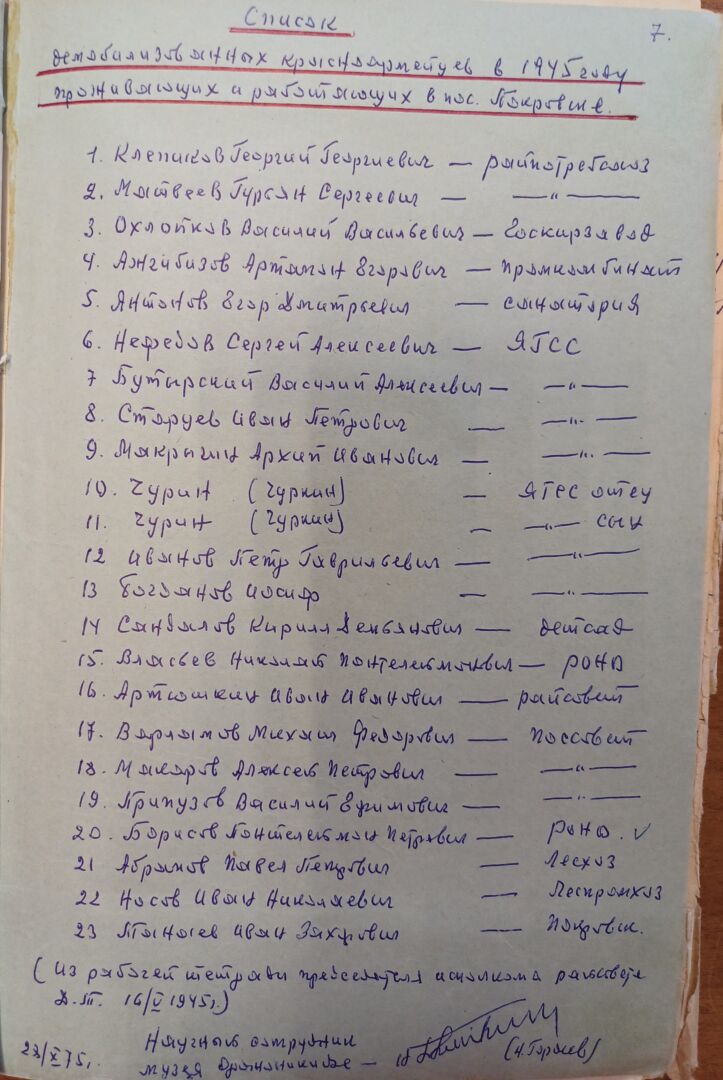 Список
7.
демобилизованных красноармейцев в 1945 году
проживающих и работающих в пос. Покровске.
1. Клепиков Георгий Георгиевич — райпотребсоюз
2. Матвеев Гурьян Сергеевич — —"—
3. Охлопков Василий Васильевич — Госкирзавод
4. Ажгибизов Артамон Егорович — промкомбинат
5. Антонов Егор Дмитриевич — санатория
6. Нефедов Сергей Алексеевич — ЯГСС
7 Бутырский Василий Алексеевич — —"—
8. Старуев Иван Петрович — —"—
9. Макрыгин Архип Иванович — —"—
10. Чурин (Чуркин) — ЯГСС отец
11. Чурин (Чуркин) — —"— сын
12 Иванов Петр Гаврильевич — —"—
13 Богданов Иосиф — —"—
14 Сандалов Кирилл Демьянович — детсад
15. Власьев Николай Пантелеймонович — РОНО
16. Артюшкин Иван Иванович — райсовет
17. Варламов Михаил Федорович — поссовет
18. Макаров Алексей Петрович — —"—
19. Припузов Василий Ефимович — —"—
20. Борисов Пантелеймон Петрович — РОНО. ✓
21 Абрамов Павел Петрович — Лесхоз
22 Носов Иван Николаевич — Леспромхоз
23 Танаев Иван Захарович — Покровск.
(Из рабочей тетради председателя исполкома райсовета
16/V 1945г.)
Научный сотрудник
22/XI 75г. музея Орджоникидзе —